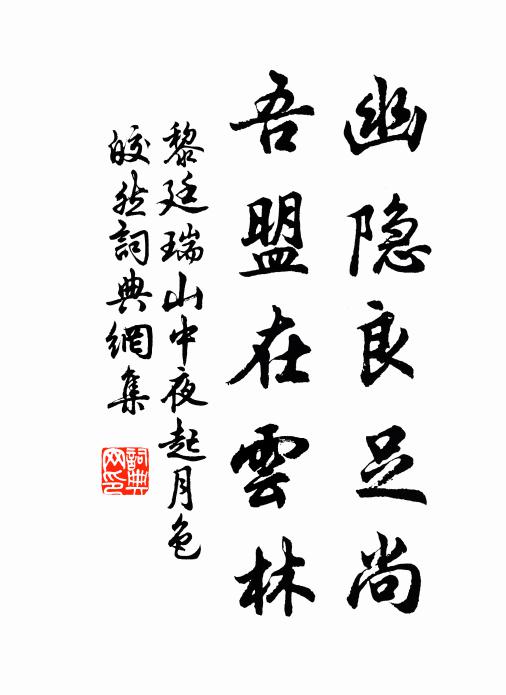 幽隐良足尚
吾盟在雲林
黎廷瑞山中夜起月色
皎然詞典網集
詞典网印